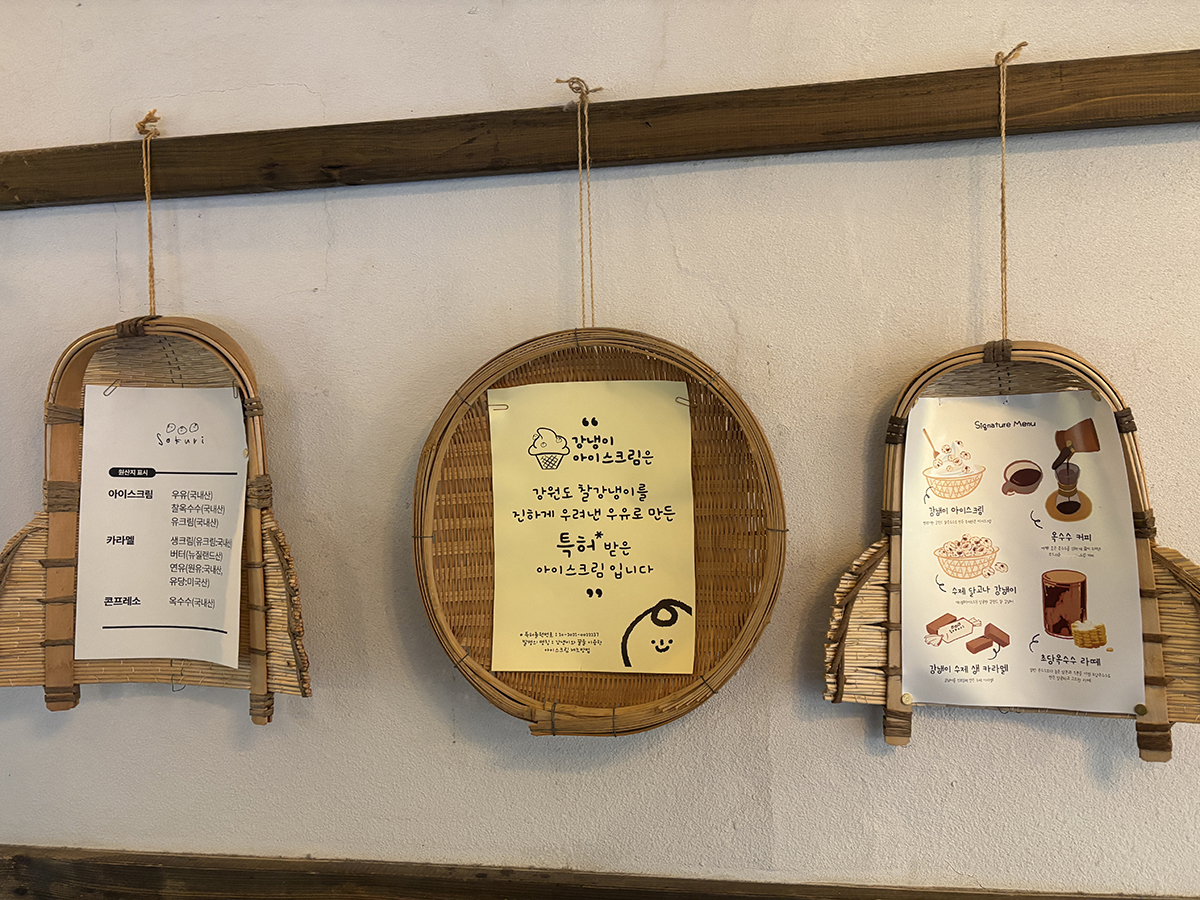 Sokuri
원산지 표시
아이스크림
우유(국내산)
찰옥수수(국내산)
유크림(국내산)
카라멜
생크림(유크림;국내산
버터(뉴질랜드산)
연유(원유;국내산,
유당;미국산)
콘프레소
옥수수(국내산)
“
강냉이
아이스크림은
강원도 찰강냉이를
진하게 우려낸 우유로 만든
특허* 받은
아이스크림 입니다
”
아이스크림 제조방법
Signature Menu
강냉이 아이스크림
옥수수 커피
수제 달고나 강냉이
강냉이 수제 생 카라멜
초당옥수수 라떼